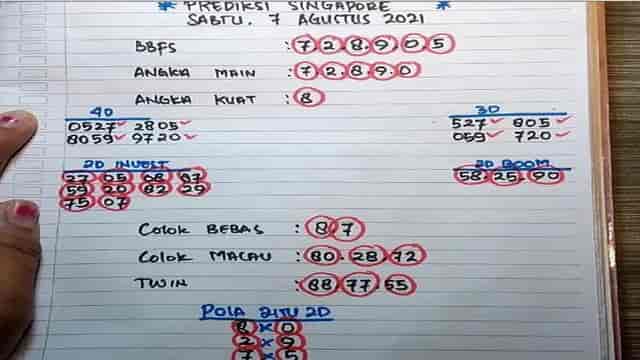 * PREDIKSI SINGAPORE *
SABTU. 7 AGUSTUS 2021
BBFS : 7.2.8.9.0.5
ANGKA MAIN : 7.2.8.9.0
ANGKA KUAT : 8
4D
0527 ✓ 2805 ✓
8059 ✓ 9720 ✓
3D
527 ✓ 805 ✓
059 ✓ 720 ✓
2D INVEST
27 05 08 97
59 20 82 29
75 07
2D BOOM
58.25.90
COLOK BEBAS : 8/7
COLOK MACAU : 80.28.72
TWIN : 88.77.55
POLA JITU 2D
8 x 0
2 x 9
7 x 5